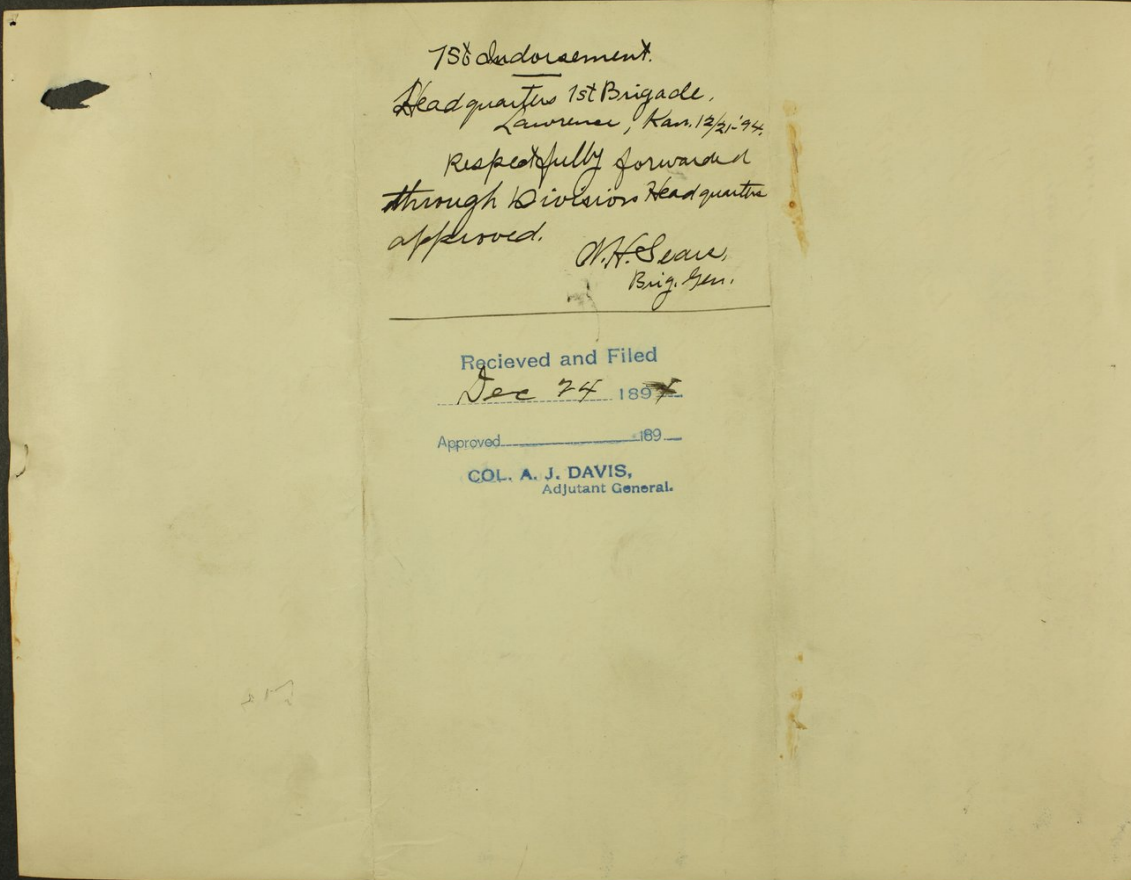 1st Indorsement.
Headquarters 1st Brigade,
Lawrence, Kan. 12/21-'94.
Respectfully forwarded
through Division Headquarters
approved.
W.H. Sears,
Brig. Gen.
Recieved and Filed
Dec 24 1894
Approved 189
COL. A. J. DAVIS,
Adjutant General.